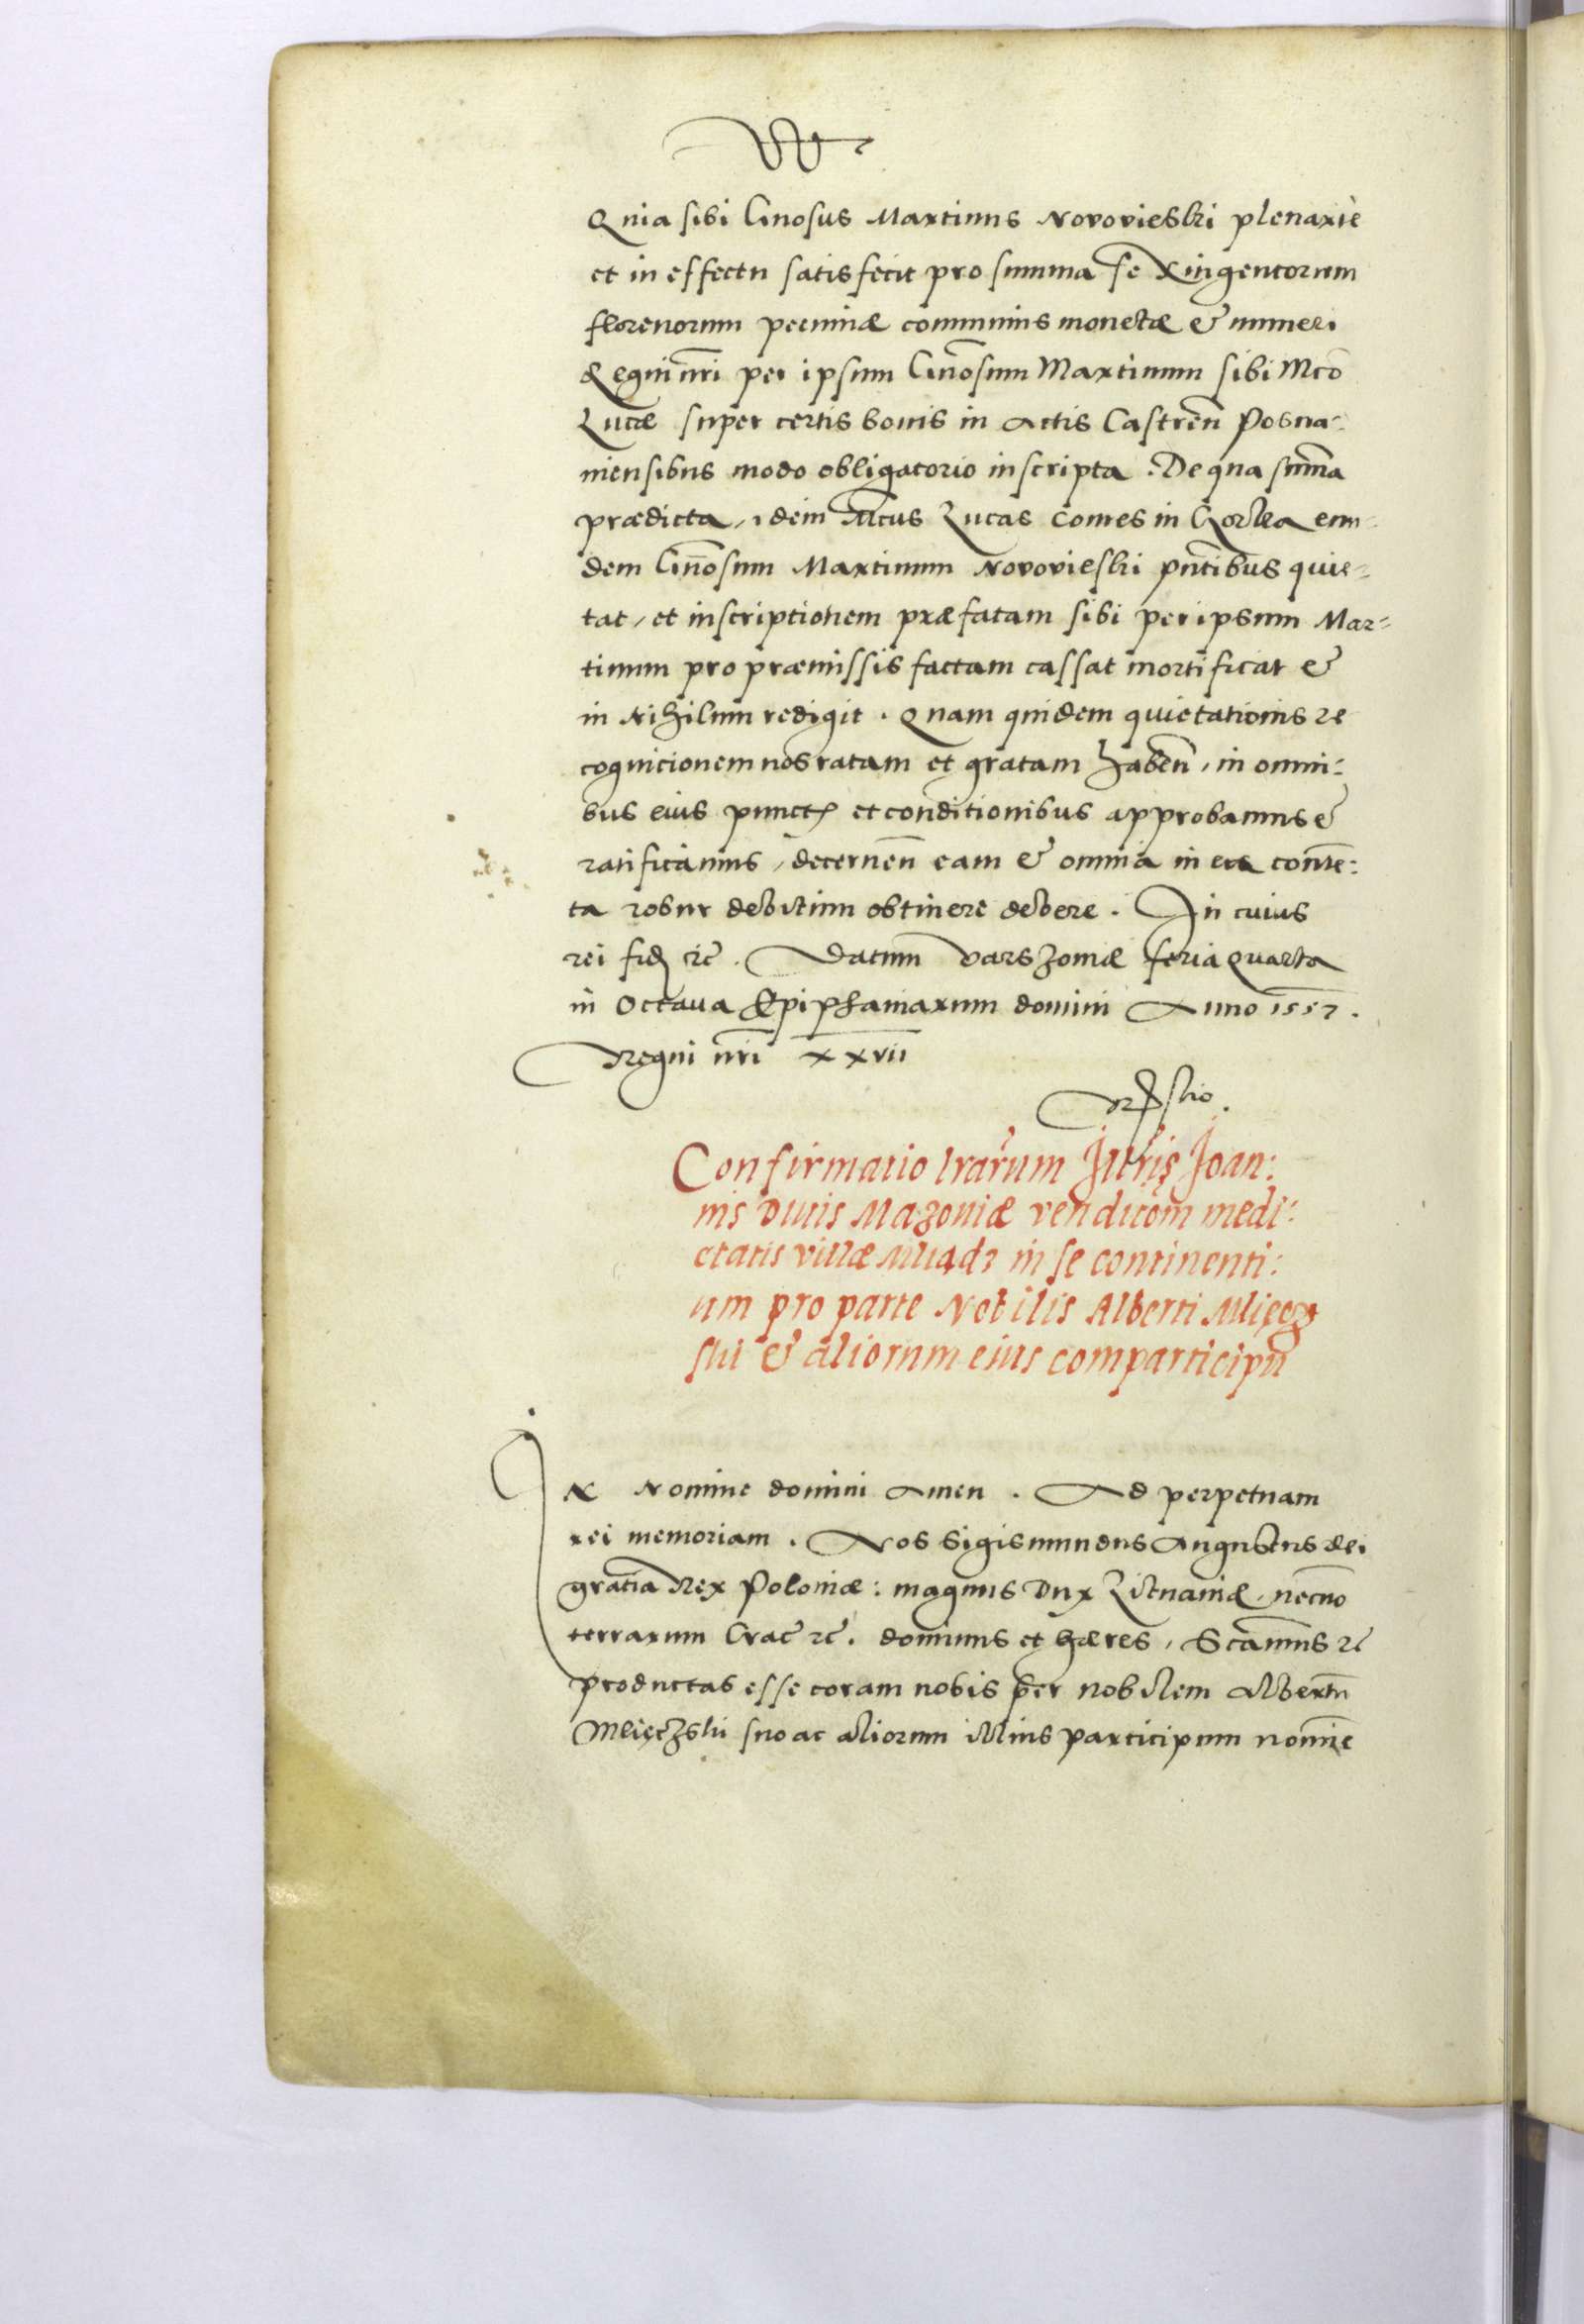 Quia sibi Gnosus Martinus Novovieski plenarie
et in effectu satisfecit pro summa sexingentorum
florenorum pecuniæ communis monetæ & numeri
Regni nr̃i per ipsum Gñosum Martinum sibi Mco
Lucæ super certis bonis in Actis Castreñ Posna-
niensibus modo obligatorio inscripta. De qua sum̃a
prædicta, idem Mcus Lucas Comes in Gorka eun-
dem Gñosum Martinum Novovieski pñtibus quie-
tat, et inscriptionem præfatam sibi per ipsum Mar-
tinum pro præmissis factam cassat mortificat &
in Nihilum redigit. Quam quidem quietationis re
cognicionem nos ratam et gratam habeñ, in omni-
bus eius punct et conditionibus approbamus &
ratificamus, decerneñ eam & omnia in ea conte-
ta robur debitum obtinere debere. In cuius
rei fid rc. Datum Varszoviæ feria quarta
in Octava Epiphaniarum domini Anno 1557.
Regni nr̃i xxvii
Confirmatio lrarum Illris Joan:
nis Ducis Mazoviæ vendicõm medi:
etatis villæ in se continenti:
um pro parte Nobilis Alberti Mlięcz
ski & aliorum eius comparticipũ
In Nomine domini Amen. Ad perpetuam
rei memoriam. Nos Sigismundus Augustus dei
gratia Rex Poloniæ: magnus Dux Lituaniæ, necno
terrarum Crac rc. dominus et hæres, Scamus rc
productas esse coram nobis per nobilem Albertũ
Mlięczski suo ac aliorum illius participum nomine